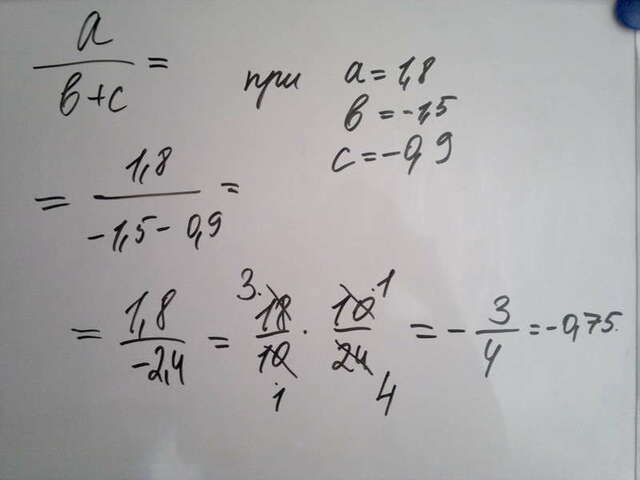 a/(b+c) = при a = 1,8
b = -1,5
c = -0,9
= 1,8/(-1,5 - 0,9) =
= 1,8/(-2,4) = 18/10 · 10/24 = - 3/4 = -0,75.
3 1
1 4